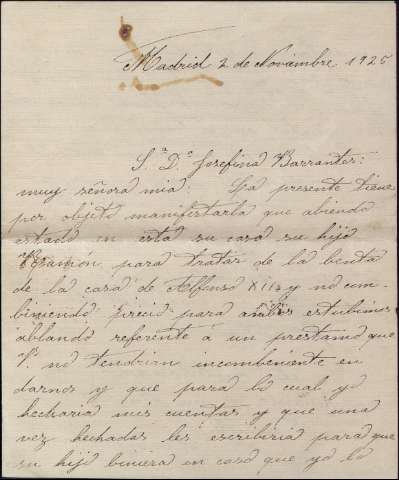 Madrid 2 de Noviembre 1925
S.ª D.ª Josefina Barrantes:
muy señora mia: La presente tiene
por objeto manifestarla que abiendo
estado en esta su casa su hijo
Ramón, para tratar de la benta
de la casa de Alfonso XII y no com-
biniendo precio para ambos estubimos
ablando referente á un prestamo que
V. no tendrian incombeniente en
darnos y que para lo cual yo
hecharia mis cuentas y que una
vez hechadas les escribiria para que
su hijo biniera en caso que yo lo